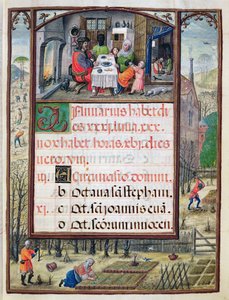 Januarius habet di
es xxxi. luna. xxx.
nox habet horas. xvj. dies
vero. viij.
A Circumcisio domini.
b Octava sci stephani.
xj. c Oct. sci Joannis evā.
d Oct. scōrum innocen